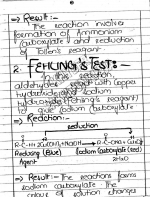 → Result:-
The reaction involves
formation of Ammonium
Carboxylate and reduction
of Tollen's reagent.
2. FEHLING'S TEST:-
In this reaction
aldehyde react with Copper
hydroxide and sodium
hydroxide (Fehling's reagent)
to give Sodium Carboxylate
→ Reaction:-
reduction
Reducing (Blue) Sodium Carboxylate (red)
Agent
→ Result:- The reaction forms
sodium carboxylate. The
colour of solution changes